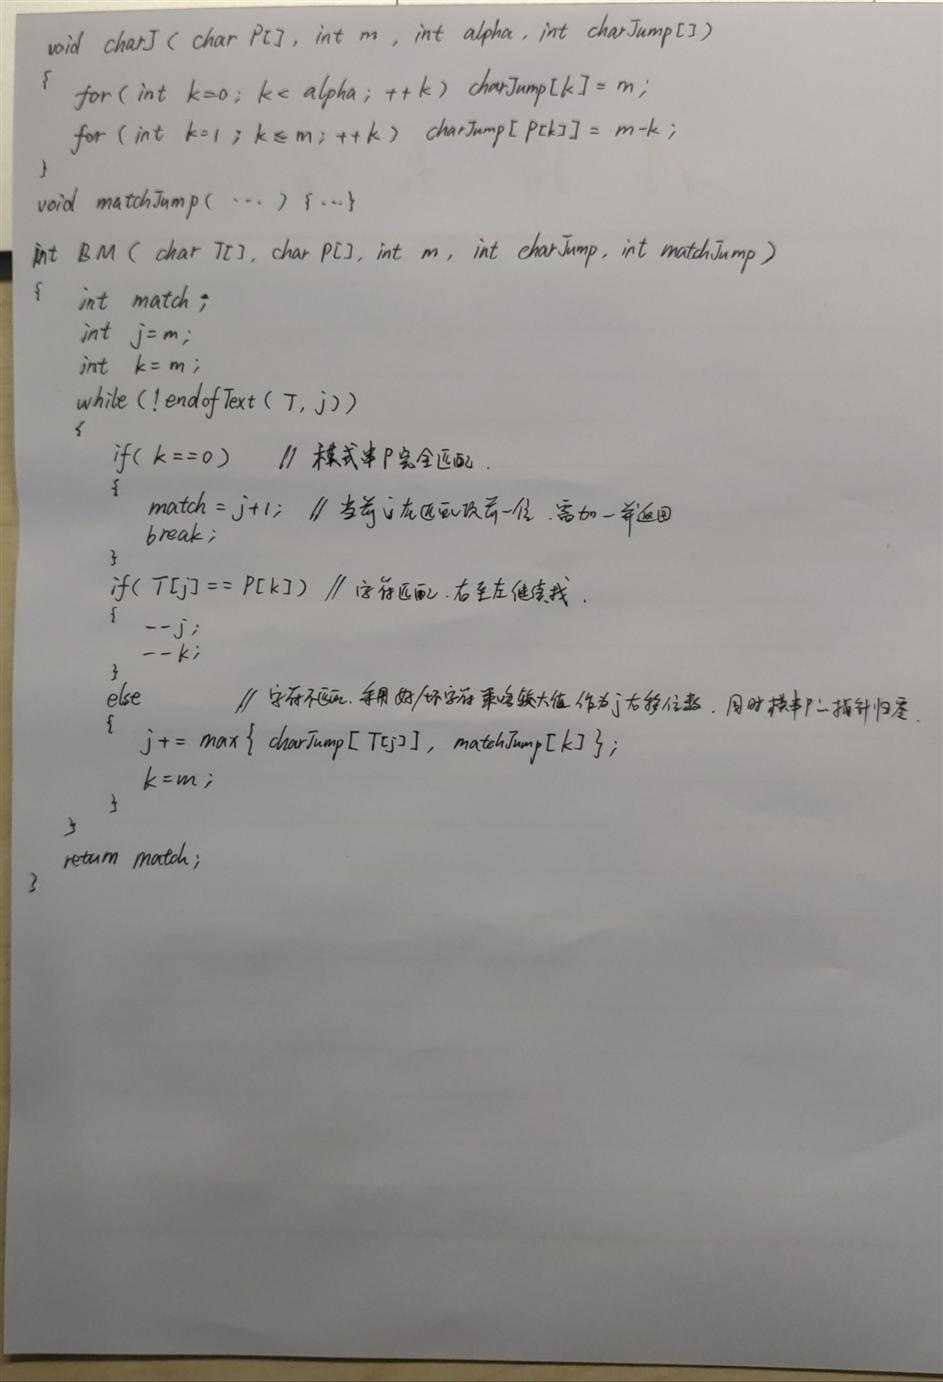 void charJ( char P[], int m, int alpha, int charJump[])
{
for( int k=0; k< alpha; ++k) charJump[k] = m;
for( int k=1; k≤m; ++k) charJump[P[k]] = m-k;
}
void matchJump( ... ) {...}
int BM( char T[], char P[], int m, int charJump, int matchJump)
{ int match;
int j=m;
int k=m;
while(!endofText(T, j))
{
if( k==0) // 模式串P完全匹配.
{
match = j+1; // 当前j在匹配段前一位.需加一并返回
break;
}
if( T[j] == P[k]) // 字符匹配.右至左继续找.
{ --j;
--k;
}
else // 字符不匹配.采用好/坏字符策略较大值作为j右移位数.同时模串P一指针归至.
{
j += max{ charJump[T[j]], matchJump[k]};
k=m;
}
}
return match;
}